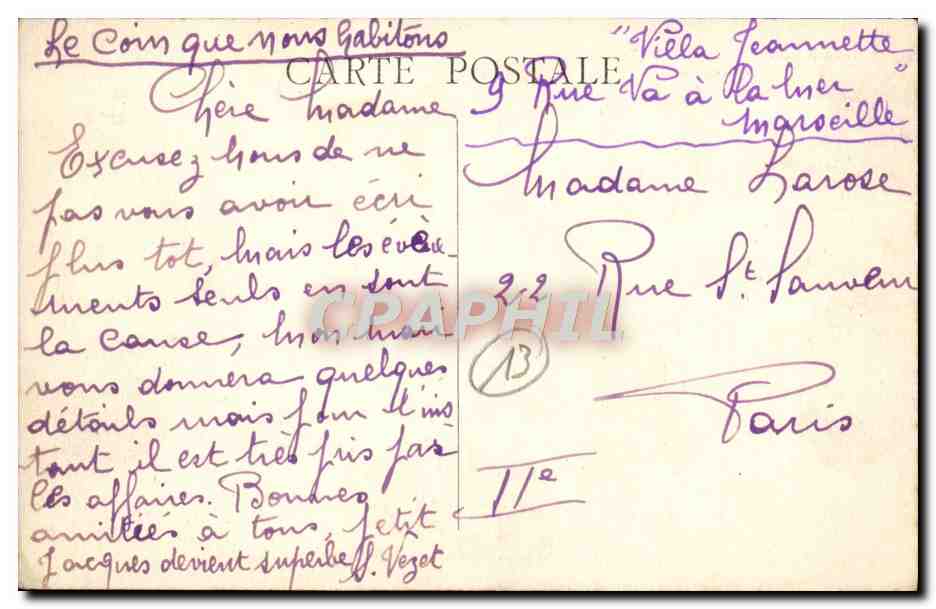 Le Coin que nous habitons
CARTE POSTALE
"Villa Jeannette"
9 Rue Va à la Mer
Marseille
Chère Madame
Excusez nous de ne
pas vous avoir écri
plus tot, mais les évène-
ments seuls en sont
la cause, mon mari
vous donnera quelques
détails mais pour l'ins
tant il est très pris par
les affaires. Bonnes
amitiés à tous, petit
Jacques devient superbe S. Vézet
Madame Larose
22 Rue St. Sauveur
Paris
IIe
13
CPAPHIL